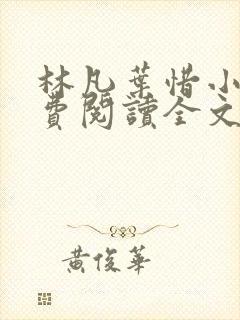 林凡葉惜小
費閱讀全文
黃俊華